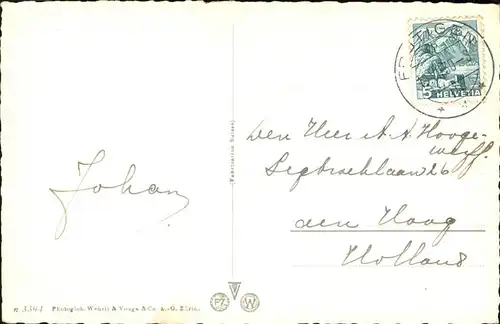 FRUTIGEN
5 HELVETIA
Den Heer A. A. Hooge-
werff.
26
Johan
den Haag
Holland
(Fabrication Suisse)
PZ W
Photoglob. Wehrli & Vouga & Co. A.-G. Zürich.